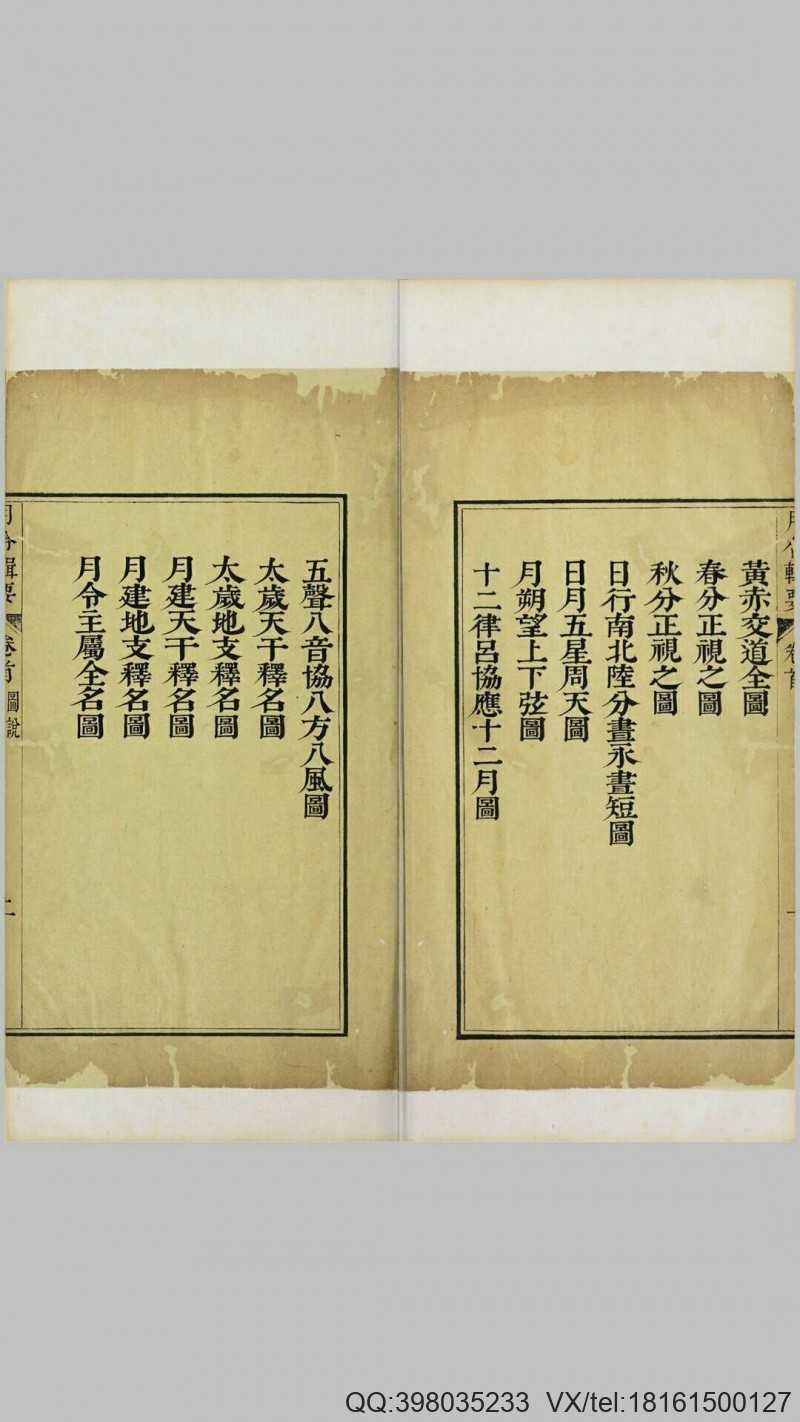 月令輯要 卷首 一
黃赤交道全圖
春分正視之圖
秋分正視之圖
日行南北陸分晝永晝短圖
日月五星周天圖
月朔望上下弦圖
十二律呂協應十二月圖
五聲八音協八方八風圖
太歲天干釋名圖
太歲地支釋名圖
月建天干釋名圖
月建地支釋名圖
月令主屬全名圖
月令輯要 卷首 圖說 二
QQ:398035233 VX/tel:18161500127